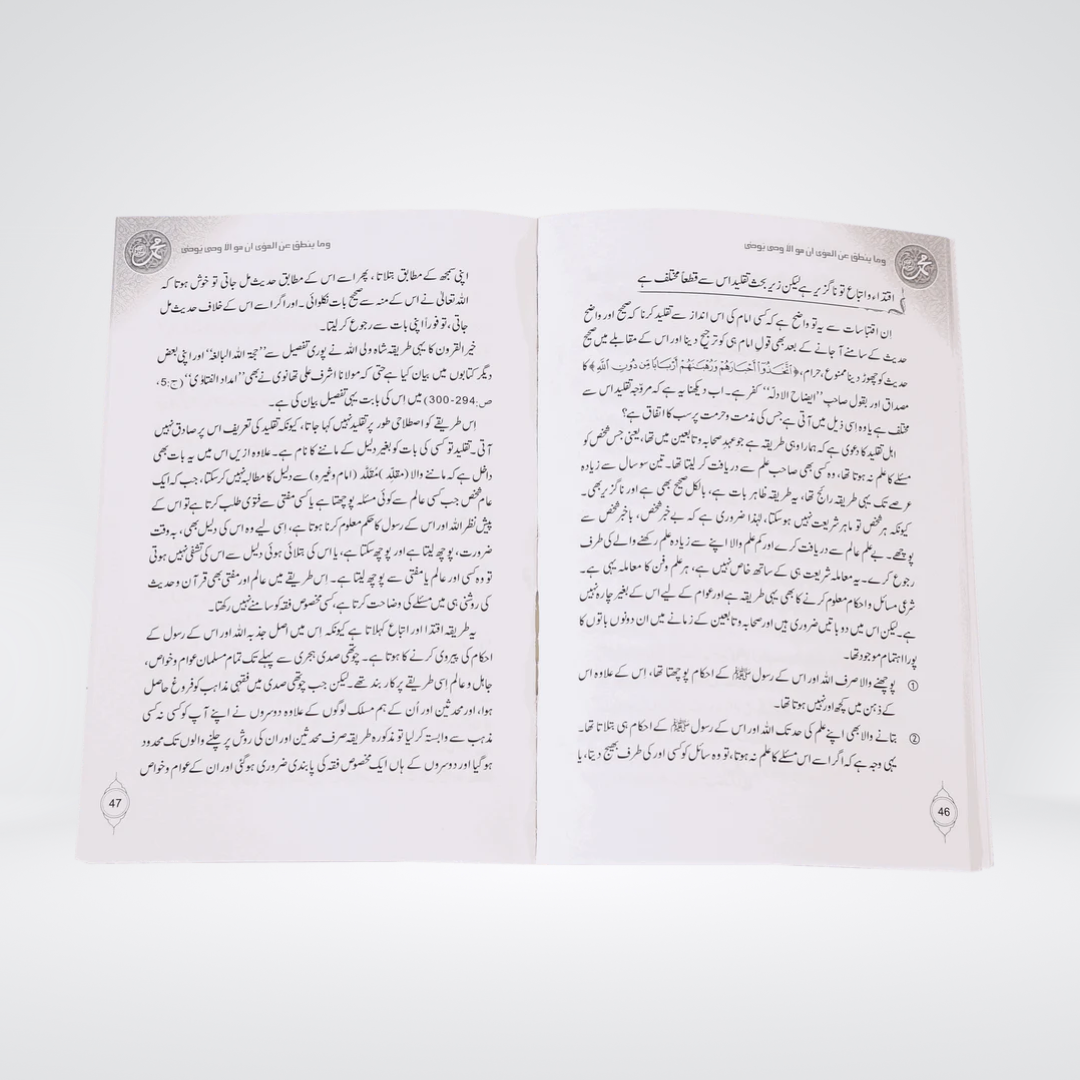 وما ينطق عن الهوى ان هو الا وحي يوحى
اقتداء و اتباع تو ناگزیر ہے لیکن زیر بحث تقلید اس سے قطعاً مختلف ہے
اِن اقتباسات سے یہ تو واضح ہے کہ کسی امام کی اس انداز سے تقلید کرنا کہ صحیح اور واضح
حدیث کے سامنے آ جانے کے بعد بھی قولِ امام ہی کو ترجیح دینا اور اس کے مقابلے میں صحیح
حدیث کو چھوڑ دینا ممنوع، حرام، ﴿اِتَّخَذُوْٓا اَحْبَارَهُمْ وَرُهْبَانَهُمْ اَرْبَابًا مِّنْ دُوْنِ اللّٰهِ﴾ کا
مصداق اور بقول صاحب ’’ایضاح الادلّہ‘‘ کفر ہے۔ اب دیکھنا یہ ہے کہ مروّجہ تقلید اس سے
مختلف ہے یا وہ اسی ذیل میں آتی ہے جس کی مذمت و حرمت پر سب کا اتفاق ہے؟
اہل تقلید کا دعویٰ ہے کہ ہمارا وہی طریقہ ہے جو عہدِ صحابہ و تابعین میں تھا، یعنی جس شخص کو
مسئلے کا علم نہ ہوتا تھا، وہ کسی بھی صاحب علم سے دریافت کر لیتا تھا۔ تین سو سال سے زیادہ
عرصے تک یہی طریقہ رائج تھا، یہ طریقہ ظاہر بات ہے، بالکل صحیح بھی ہے اور ناگزیر بھی۔
کیونکہ ہر شخص تو ماہر شریعت نہیں ہو سکتا، لہٰذا ضروری ہے کہ بے خبر شخص، باخبر شخص سے
پوچھے۔ بے علم عالم سے دریافت کرے اور کم علم والا اپنے سے زیادہ علم رکھنے والے کی طرف
رجوع کرے۔ یہ معاملہ شریعت ہی کے ساتھ خاص نہیں ہے، ہر علم و فن کا معاملہ یہی ہے۔
شرعی مسائل و احکام معلوم کرنے کا بھی یہی طریقہ ہے اور عوام کے لیے اس کے بغیر چارہ نہیں
ہے۔ لیکن اس میں دو باتیں ضروری ہیں اور صحابہ و تابعین کے زمانے میں ان دونوں باتوں کا
پورا اہتمام موجود تھا۔
① پوچھنے والا صرف اللہ اور اس کے رسول ﷺ کے احکام پوچھتا تھا، اِس کے علاوہ اس
کے ذہن میں کچھ اور نہیں ہوتا تھا۔
② بتانے والا بھی اپنے علم کی حد تک اللہ اور اس کے رسول ﷺ کے احکام ہی بتلاتا تھا۔
یہی وجہ ہے کہ اگر اسے اس مسئلے کا علم نہ ہوتا، تو وہ سائل کو کسی اور کی طرف بھیج دیتا، یا
46
وما ينطق عن الهوى ان هو الا وحي يوحى
اپنی سمجھ کے مطابق بتلاتا، پھر اسے اس کے مطابق حدیث مل جاتی تو خوش ہوتا کہ
اللہ تعالیٰ نے اس کے منہ سے صحیح بات نکلوائی۔ اور اگر اسے اس کے خلاف حدیث مل
جاتی، تو فوراً اپنی بات سے رجوع کر لیتا۔
خیر القرون کا یہی طریقہ شاہ ولی اللہ نے پوری تفصیل سے ’’حجۃ اللہ البالغہ‘‘ اور اپنی بعض
دیگر کتابوں میں بیان کیا ہے حتی کہ مولانا اشرف علی تھانوی نے بھی ’’امداد الفتاوٰی‘‘ (ج:5،
ص:294-300) میں اس کی بابت یہی تفصیل بیان کی ہے۔
اس طریقے کو اصطلاحی طور پر تقلید نہیں کہا جاتا، کیونکہ تقلید کی تعریف اس پر صادق نہیں
آتی۔ تقلید تو کسی کی بات کو بغیر دلیل کے ماننے کا نام ہے۔ علاوہ ازیں اس میں یہ بات بھی
داخل ہے کہ ماننے والا (مقلِّد) مقلَّد (امام وغیرہ) سے دلیل کا مطالبہ نہیں کر سکتا، جب کہ ایک
عام شخص جب کسی عالم سے کوئی مسئلہ پوچھتا ہے یا کسی مفتی سے فتویٰ طلب کرتا ہے تو اس کے
پیش نظر اللہ اور اس کے رسول کا حکم معلوم کرنا ہوتا ہے، اِسی لیے وہ اس کی دلیل بھی، بہ وقت
ضرورت، پوچھ لیتا ہے اور پوچھ سکتا ہے، یا اس کی بتلائی ہوئی دلیل سے اس کی تشفی نہیں ہوتی
تو وہ کسی اور عالم یا مفتی سے پوچھ لیتا ہے۔ اِس طریقے میں عالم اور مفتی بھی قرآن و حدیث
کی روشنی ہی میں مسئلے کی وضاحت کرتا ہے، کسی مخصوص فقہ کو سامنے نہیں رکھتا۔
یہ طریقہ اقتدا اور اتباع کہلاتا ہے کیونکہ اِس میں اصل جذبہ اللہ اور اس کے رسول کے
احکام کی پیروی کرنے کا ہوتا ہے۔ چوتھی صدی ہجری سے پہلے تک تمام مسلمان عوام و خواص،
جاہل و عالم اِسی طریقے پر کار بند تھے۔ لیکن جب چوتھی صدی میں فقہی مذاہب کو فروغ حاصل
ہوا، اور محدثین اور اُن کے ہم مسلک لوگوں کے علاوہ دوسروں نے اپنے آپ کو کسی نہ کسی
مذہب سے وابستہ کر لیا تو مذکورہ طریقہ صرف محدثین اور ان کی روش پر چلنے والوں تک محدود
ہو گیا اور دوسروں کے ہاں ایک مخصوص فقہ کی پابندی ضروری ہوگئی اور ان کے عوام و خواص
47